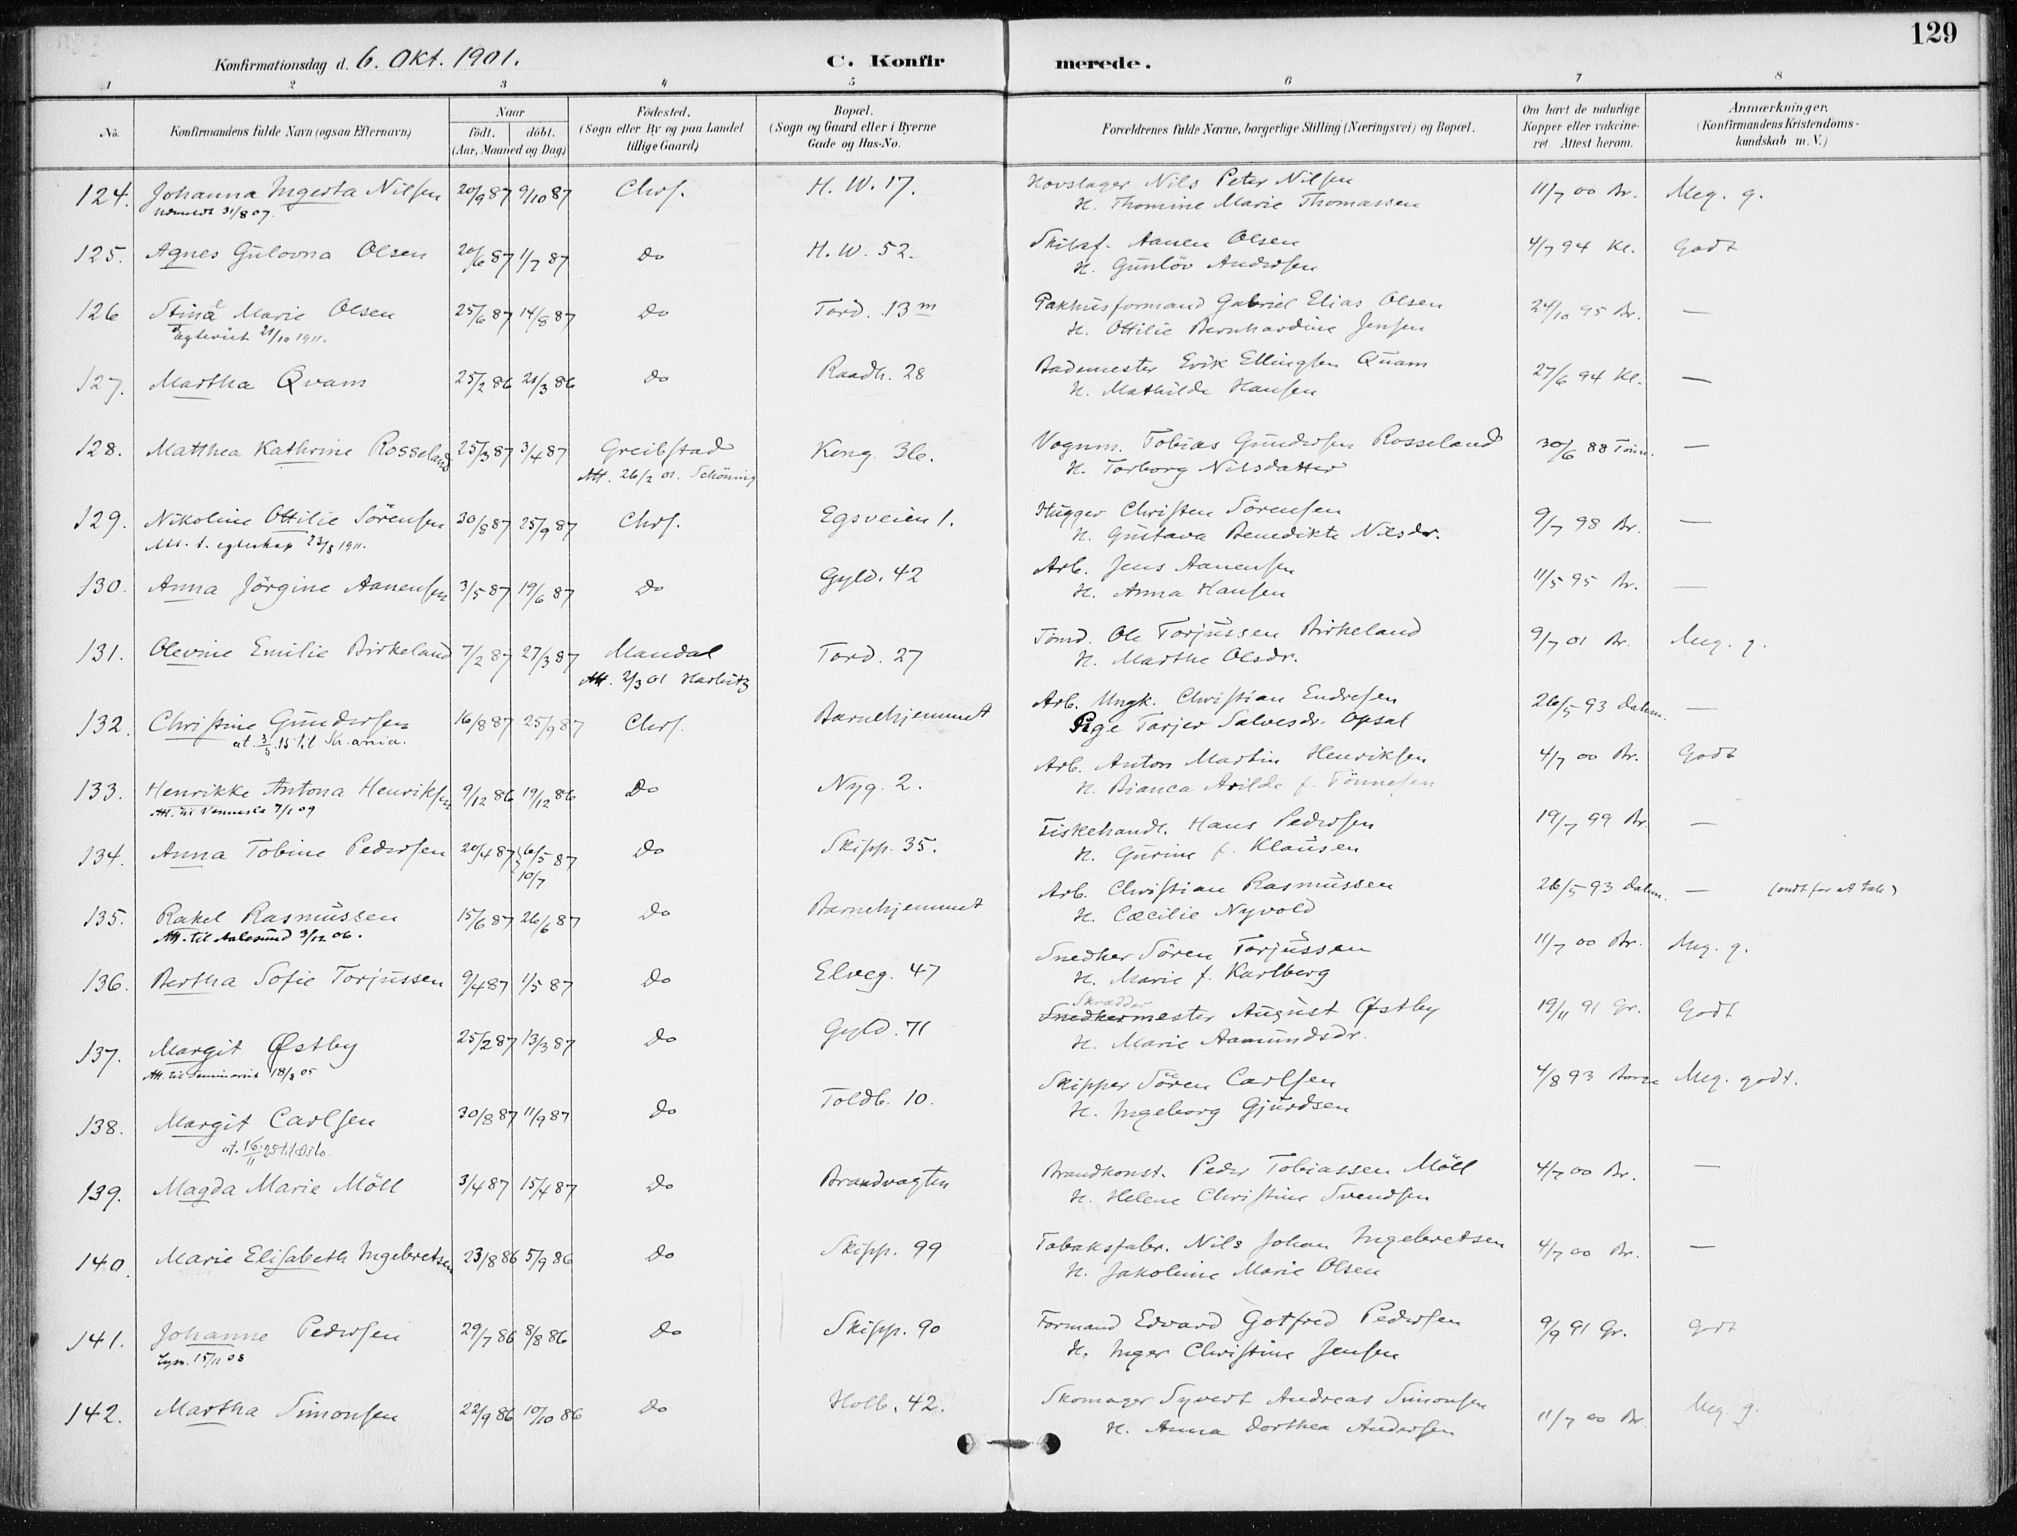 129
Konfirmationsdag d. 6. Okt. 1901.
C. Konfir merede.
1 2 3 4 5 6 7 8
No. Konfirmandens fulde Navn (ogsaa Efternavn) Naar födt. döbt. (Aar, Maaned og Dag)
Födested. (Sogn eller By og paa Landet tillige Gaard)
Bopæl. (Sogn og Gaard eller i Byerne Gade og Hus-No.
Forældrenes fulde Navne, borgerlige Stilling (Næringsvei) og Bopæl.
Om havt de naturlige Kopper eller vakcineret. Attest herom.
Anmærkninger. (Konfirmandens Kristendomskundskab m. V.)
124. Johanna Ingerta Nilsen 20/9 87 9/10 87 Chrs. H. W. 17. Hovslager Nils Peter Nilsen 11/7 00 Br. Meg. g.
31/8 07. H. Thomine Marie Thomassen
125. Agnes Gulovna Olsen 20/6 87 1/7 87 Do H. W. 52. Skibsf. Aanen Olsen 4/7 94 Kl. Godt
H. Gunlöv Andersen
126 Stina Marie Olsen 25/6 87 14/8 87 Do Tord. 13m Pakhusformand Gabriel Elias Olsen 24/10 95 Br. —
Egteviet 21/10 1911. H. Ottilie Bernhardine Jensen
127. Martha Qvam 25/2 86 21/3 86 Do Raadh. 28 Bademester Erik Ellingsen Quam 27/6 94 Kl. —
H. Mathilde Hansen
128. Matthea Kathrine Rosseland 25/3 87 3/4 87 Greibstad Kong. 36. Vognm. Tobias Gundersen Rosseland 30/6 88 Tönn. —
Att. 26/2 01. Schöning H. Torborg Nilsdatter
129. Nikoline Ottilie Sörensen 30/8 87 25/9 87 Chrs. Egsveien 1. Hugger Christen Sörensen 9/7 98 Br. —
Att. t. egteskap 23/8 1911. H. Gustava Benedikte Nilsdr.
130. Anna Jörgine Aanensen 3/5 87 19/6 87 Do Gyld. 42 Arb. Jens Aanensen 11/5 95 Br. —
H. Anna Hansen
131. Olevine Emilie Birkeland 7/2 87 27/3 87 Mandal Tord. 27 Tömd. Ole Torjussen Birkeland 9/7 01 Br. Meg. g.
Att. 2/3 01 H. Marthe Olsdr.
132. Christine Gundersen 16/8 87 25/9 87 Chrs. Barnehjemmet Arb. Ungk. Christian Endresen 26/5 93 Dahm. —
at. 3/5 15 til Kr.ania. Pige Tarjer Salvesdr. Opsal
133. Henrikke Antona Henriksen 9/12 86 19/12 86 Do Nyg. 2. Arb. Anton Martin Henriksen 4/7 00 Br. Godt
Att. til Vennesla 7/1 09 H. Bianca Arilde f. Tönnesen
134. Anna Tobine Pedersen 20/4 87 6/5 87 Do Skipp. 35. Fiskehandl. Hans Pedersen 19/7 99 Br. —
10/7 H. Gurine f. Klausen
135. Rakel Rasmussen 15/6 87 26/6 87 Do Barnehjemmet Arb. Christian Rasmussen 26/5 93 Dahm. — (ondt for at tale)
Att. til Aalesund 3/12 06. H. Cæcilie Nyvold
136. Bertha Sofie Torjussen 9/4 87 1/5 87 Do Elveg. 47 Snedker Sören Torjussen 11/7 00 Br. Meg. g.
H. Marie f. Karlberg
Skrædder
137. Margit Østby 25/2 87 13/3 87 Do Gyld. 71 Snedkermester August Østby 19/11 91 Gr. Godt
Att. til seminariet 18/3 05 H. Marie Aamundsdr.
138. Margit Carlsen 30/8 87 11/9 87 Do Toldb. 10. Skipper Sören Carlsen 4/8 93 Meg. godt.
at. 16/11 25 til Oslo. H. Ingeborg Gjurdsen
139. Magda Marie Möll 3/4 87 15/4 87 Do Brandvagten Brandkonst. Peder Tobiassen Möll 4/7 00 Br. —
H. Helene Christine Svendsen
140. Marie Elisabeth Ingebretsen 23/8 86 5/9 86 Do Skipp. 99 Tobaksfabr. Nils Johan Ingebretsen 4/7 00 Br. —
H. Jakoline Marie Olsen
141. Johanne Pedersen 29/7 86 8/8 86 Do Skipp. 90 Formand Edvard Gotfred Pedersen 9/9 91 Gr. Godt
Lysn. 15/11 08 H. Inger Christine Jensen
142. Martha Simonsen 22/9 86 10/10 86 Do Holb. 42. Skomager Syvert Andreas Simonsen 11/7 00 Br. Meg. g.
H. Anna Dorthea Andersen